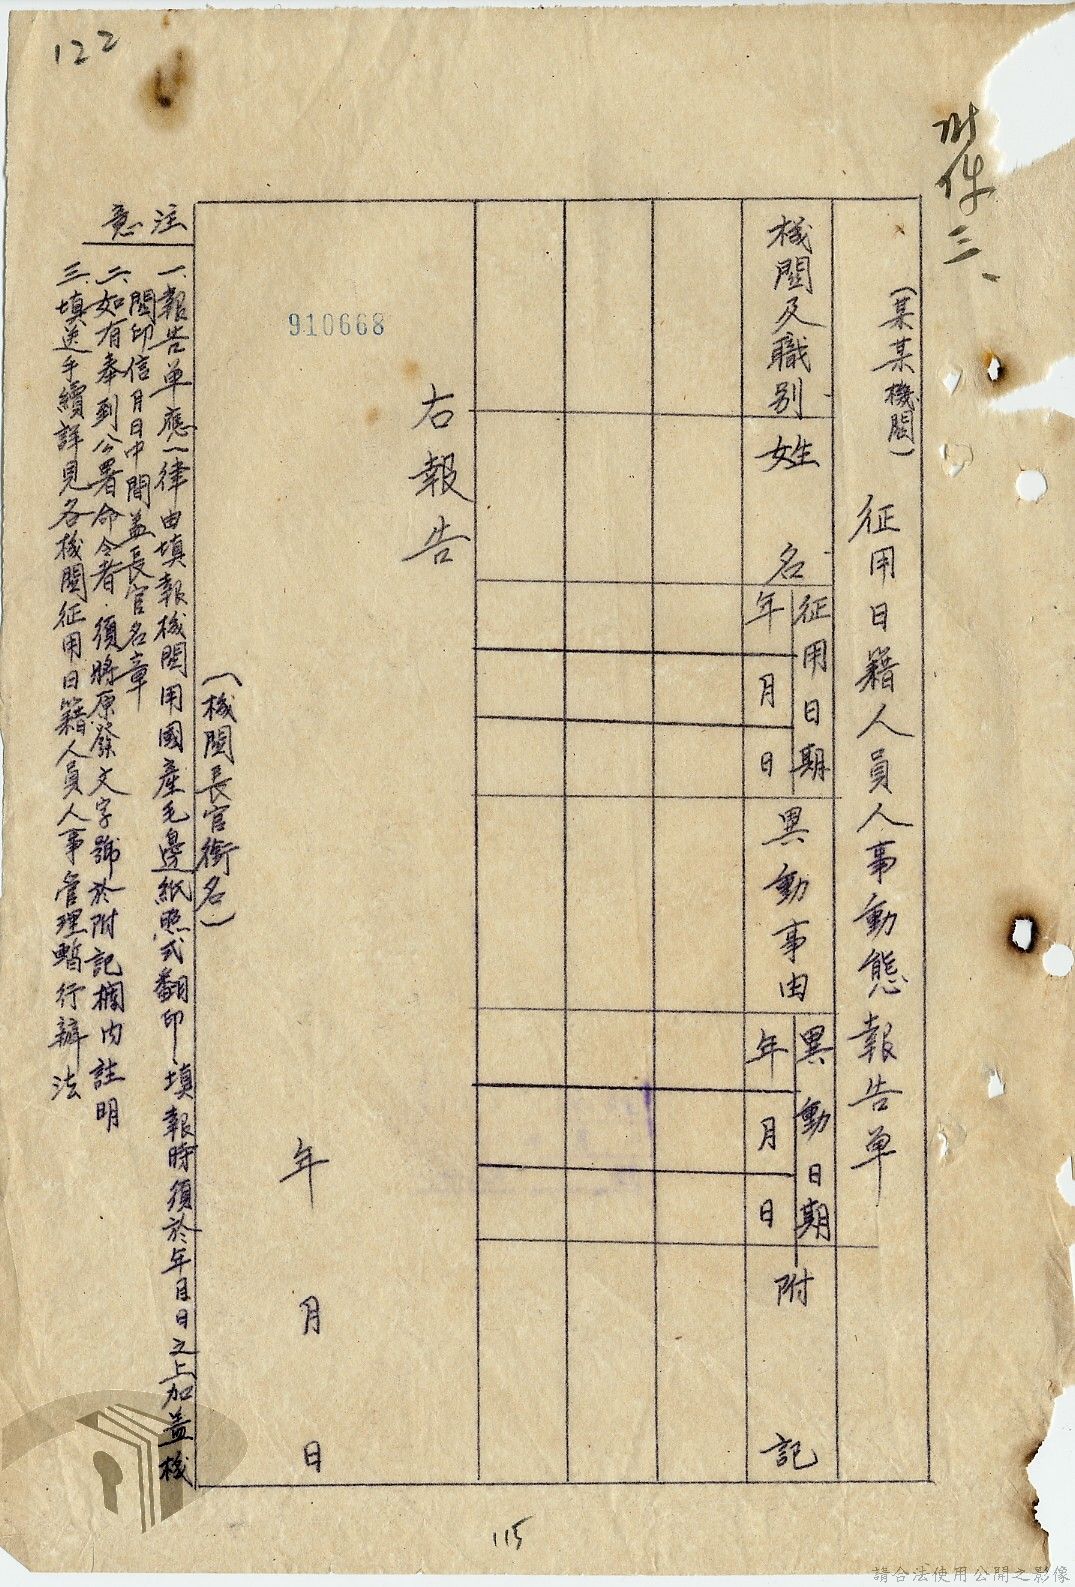 122
附件三、
(某某機関)
征用日籍人員人事動態報告单
機関及職别
姓名
征用日期
年
月
日
異動事由
異動日期
年
月
日
附記
右報告
910668
(機関長官銜名)
年月日
注意
一、報告单應一律由填報機関用國產毛邊紙照式翻印、填報時須於年月日之上加盖機
関印信月日中間盖長官名章
二、如有奉到公署命令者、須將原發文字號於附記欄内註明
三、填送手續詳見各機関征用日籍人員人事管理暫行辦法
115
請合法使用公開之影像